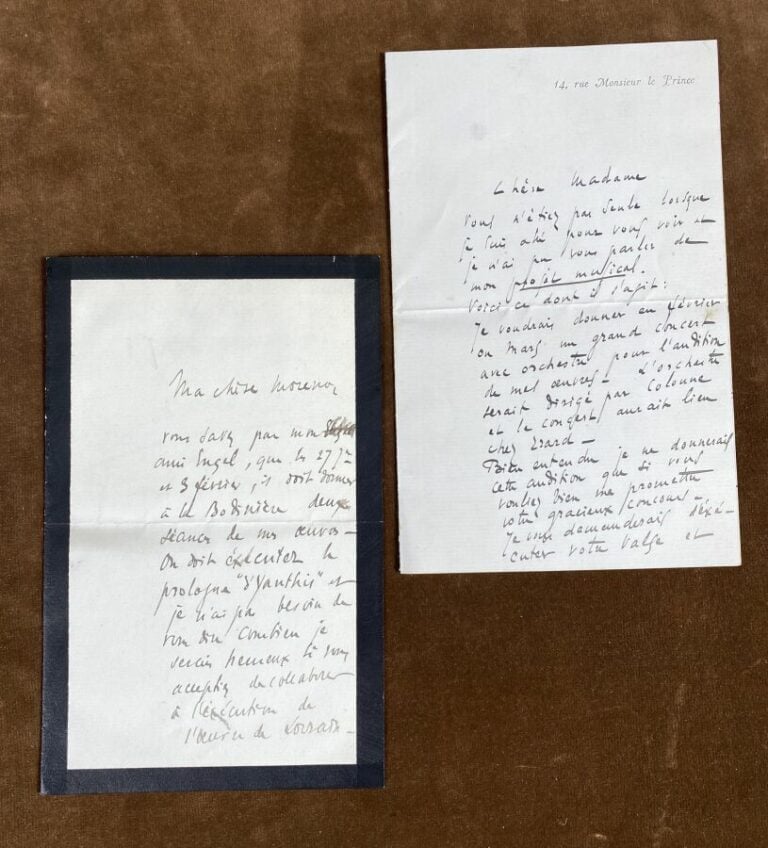 Ma chère Moreno,
vous savez par mon
ami Engel, que les 27 Jer
et 3 février, il doit donner
à la Bodinière deux
séances de mes œuvres –
On doit exécuter le
prologue "d'Yanthis" et
je n'ai pas besoin de
vous dire combien je
serais heureux si vous
acceptiez de collaborer
à l'exécution de
l'œuvre de Lorrain –
14, rue Monsieur le Prince
Chère Madame
vous n'étiez pas seule lorsque
je suis allé pour vous voir et
je n'ai pu vous parler de
mon projet musical.
Voici ce dont il s'agit :
Je voudrais donner en février
ou mars un grand concert
avec orchestre pour l'audition
de mes œuvres – L'orchestre
serait dirigé par Colonne
et le concert aurait lieu
chez Erard –
Bien entendu je ne donnerais
cette audition que si vous
vouliez bien me promettre
votre gracieux concours –
Je vous demanderais d'exé-
cuter votre valse et